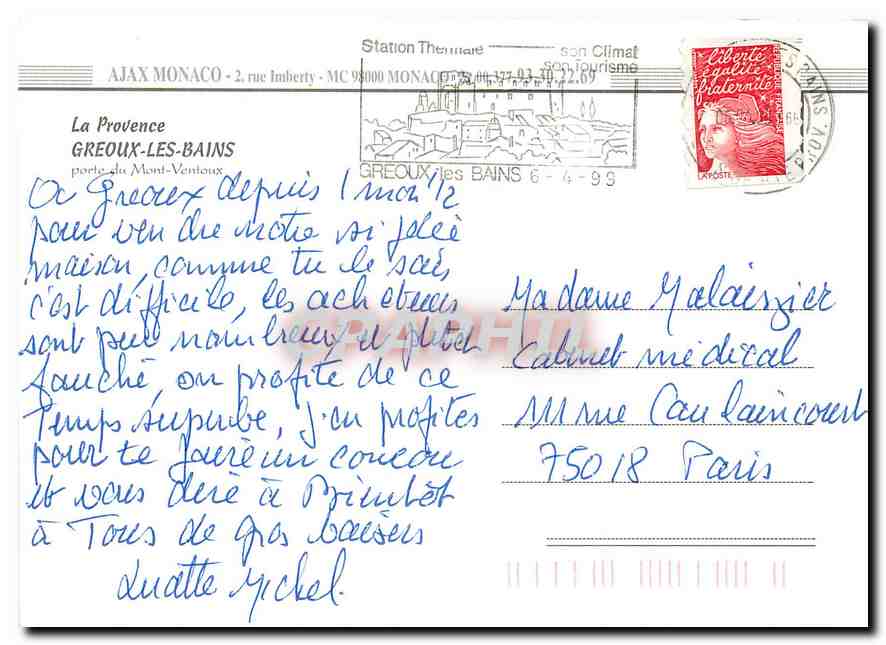 Station Thermale son Climat
son Tourisme
AJAX MONACO - 2, rue Imberty - MC 98000 MONACO 93.30.22.69
GREOUX les BAINS 6-4-99
liberté
égalité
fraternité
REPUBLIQUE FRANÇAISE
LA POSTE
La Provence
GREOUX-LES-BAINS
porte du Mont-Ventoux
Gréoux depuis 1 mois 1/2
pour vendre notre si jolie
maison, comme tu le sais
c'est difficile, les acheteurs
sont peu nombreux et plutôt
fauché, on profite de ce
Temps superbe, j'en profites
pour te faire un coucou
et vous dire à Bientôt
à Tous de gros baisers
Michel.
Madame Malaiszier
Cabinet médical
111 rue Caulaincourt
75018 Paris